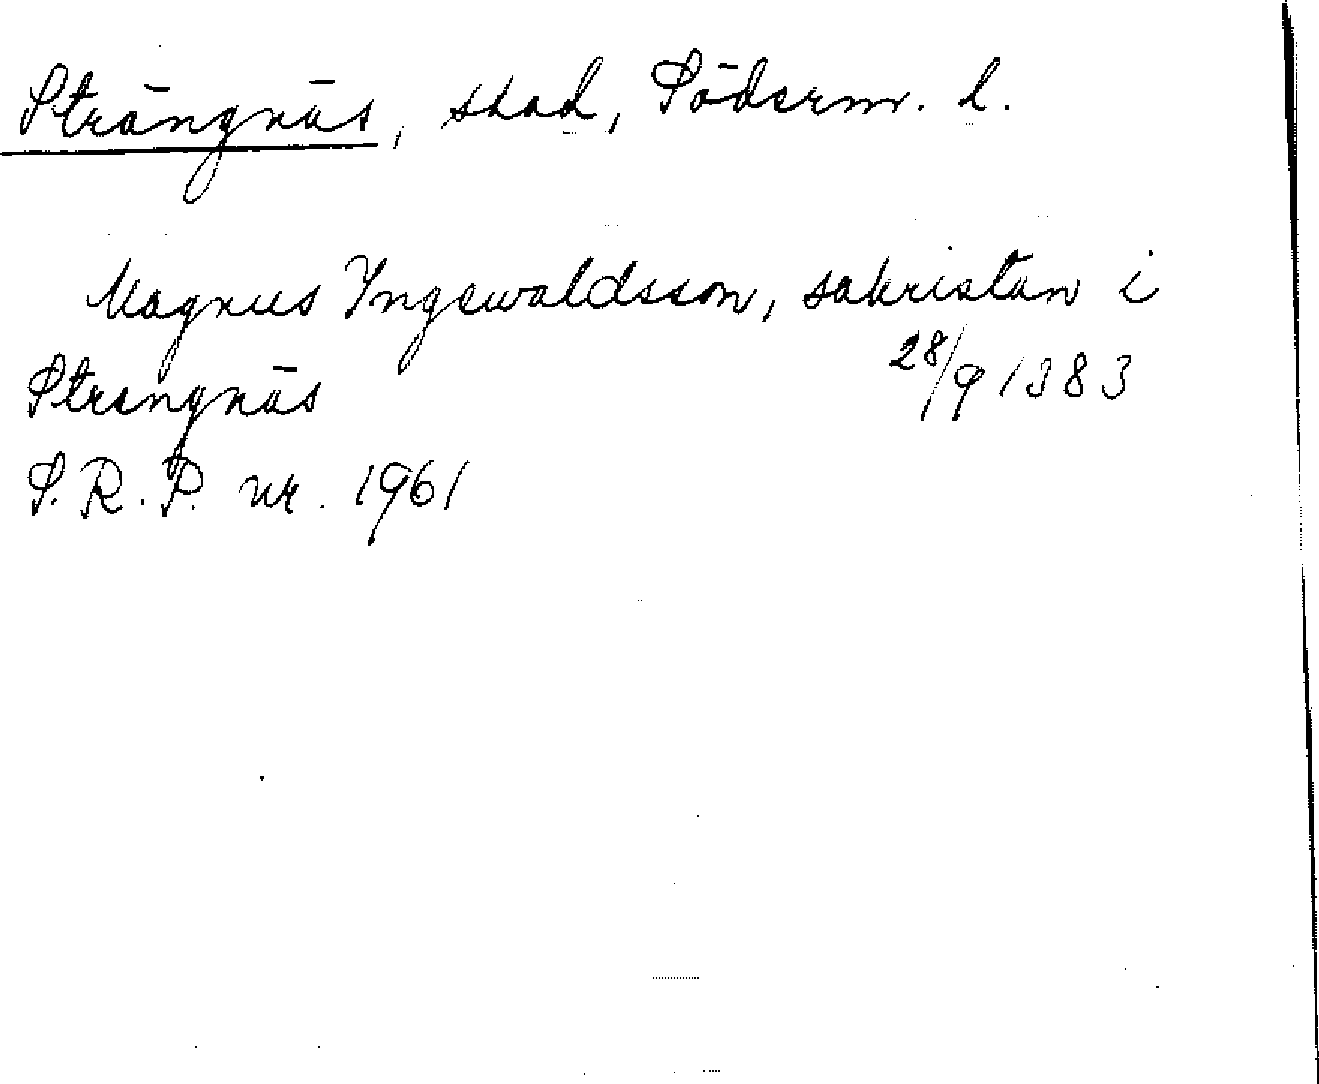 Strängnäs, stad, Söderm. l.
Magnus Ingewaldsson, sakristan i
Strengnäs 28/9 1383
S.R.P. nr. 1961